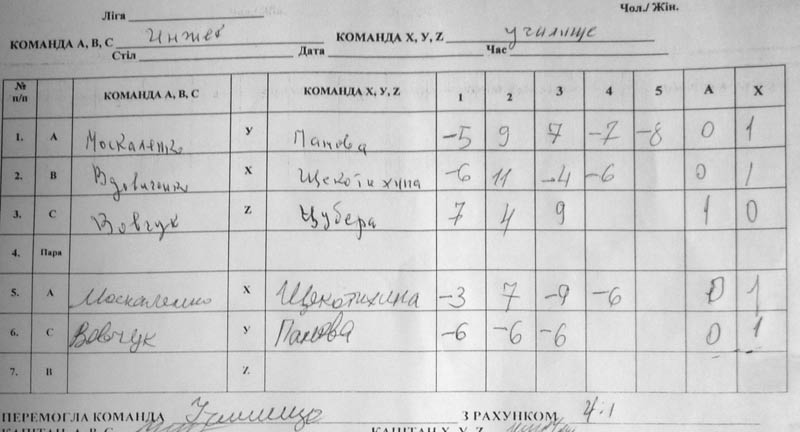 Чол./ Жін.
Ліга
КОМАНДА А, В, С Инжек КОМАНДА X, У, Z училище
Стіл Дата Час
№ п/п КОМАНДА А, В, С КОМАНДА X, У, Z 1 2 3 4 5 А X
1. А Москаленко У Панова -5 9 7 -7 -8 0 1
2. В Вдовиченко X Щекотихина -6 11 -4 -6 0 1
3. С Вовчук Z Цубера 7 4 9 1 0
4. Пара
5. А Москаленко X Щекотихина -3 7 -9 -6 0 1
6. С Вовчук У Панова -6 -6 -6 0 1
7. В Z
ПЕРЕМОГЛА КОМАНДА Училище З РАХУНКОМ 4:1
КАПІТАН А, В, С КАПІТАН X, У, Z